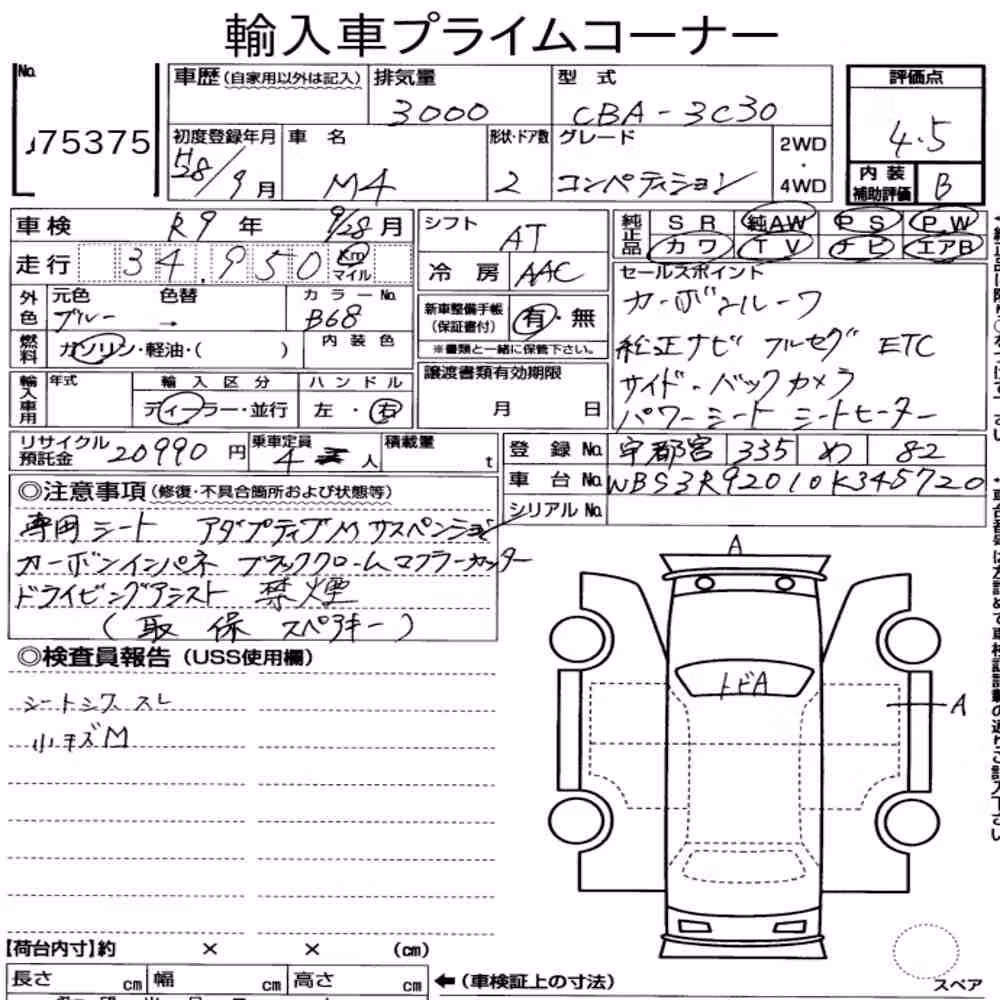 輸入車プライムコーナー
No.
75375
車歴(自家用以外は記入)
排気量
3000
型式
CBA-3C30
評価点
4.5
内装補助評価
B
初度登録年月
H28/9月
車名
M4
形状・ドア数
2
グレード
コンペティション
2WD・4WD
車検 R9年 9/28月
シフト
AT
純正品
SR 純AW PS PW
カワ TV ナビ エアB
走行 34,950 Km マイル
冷房 AAC
セールスポイント
カーボンルーフ
純正ナビ フルセグ ETC
サイド・バックカメラ
パワーシート シートヒーター
外色
元色 色替
ブルー →
カラーNo.
B68
新車整備手帳(保証書付)
有・無
※書類と一緒に保管下さい。
燃料
ガソリン・軽油・( )
内装色
譲渡書類有効期限
月 日
輸入車用
年式
輸入区分
ディーラー・並行
ハンドル
左・右
リサイクル預託金 20990円
乗車定員
4人
積載量
t
登録No. 宇都宮 335 め 82
車台No. WBS3R92010K345720
シリアルNo.
◎注意事項(修復・不具合箇所および状態等)
専用シート アダプティブMサスペンション
カーボンインパネ ブラッククロームマフラーカッター
ドライビングアシスト 禁煙
(取 保 スペアキー)
◎検査員報告(USS使用欄)
シートシワ スレ
小キズM
A
トビA
A
【荷台内寸】約 × × (cm)
長さ cm 幅 cm 高さ cm
←(車検証上の寸法)
スペア